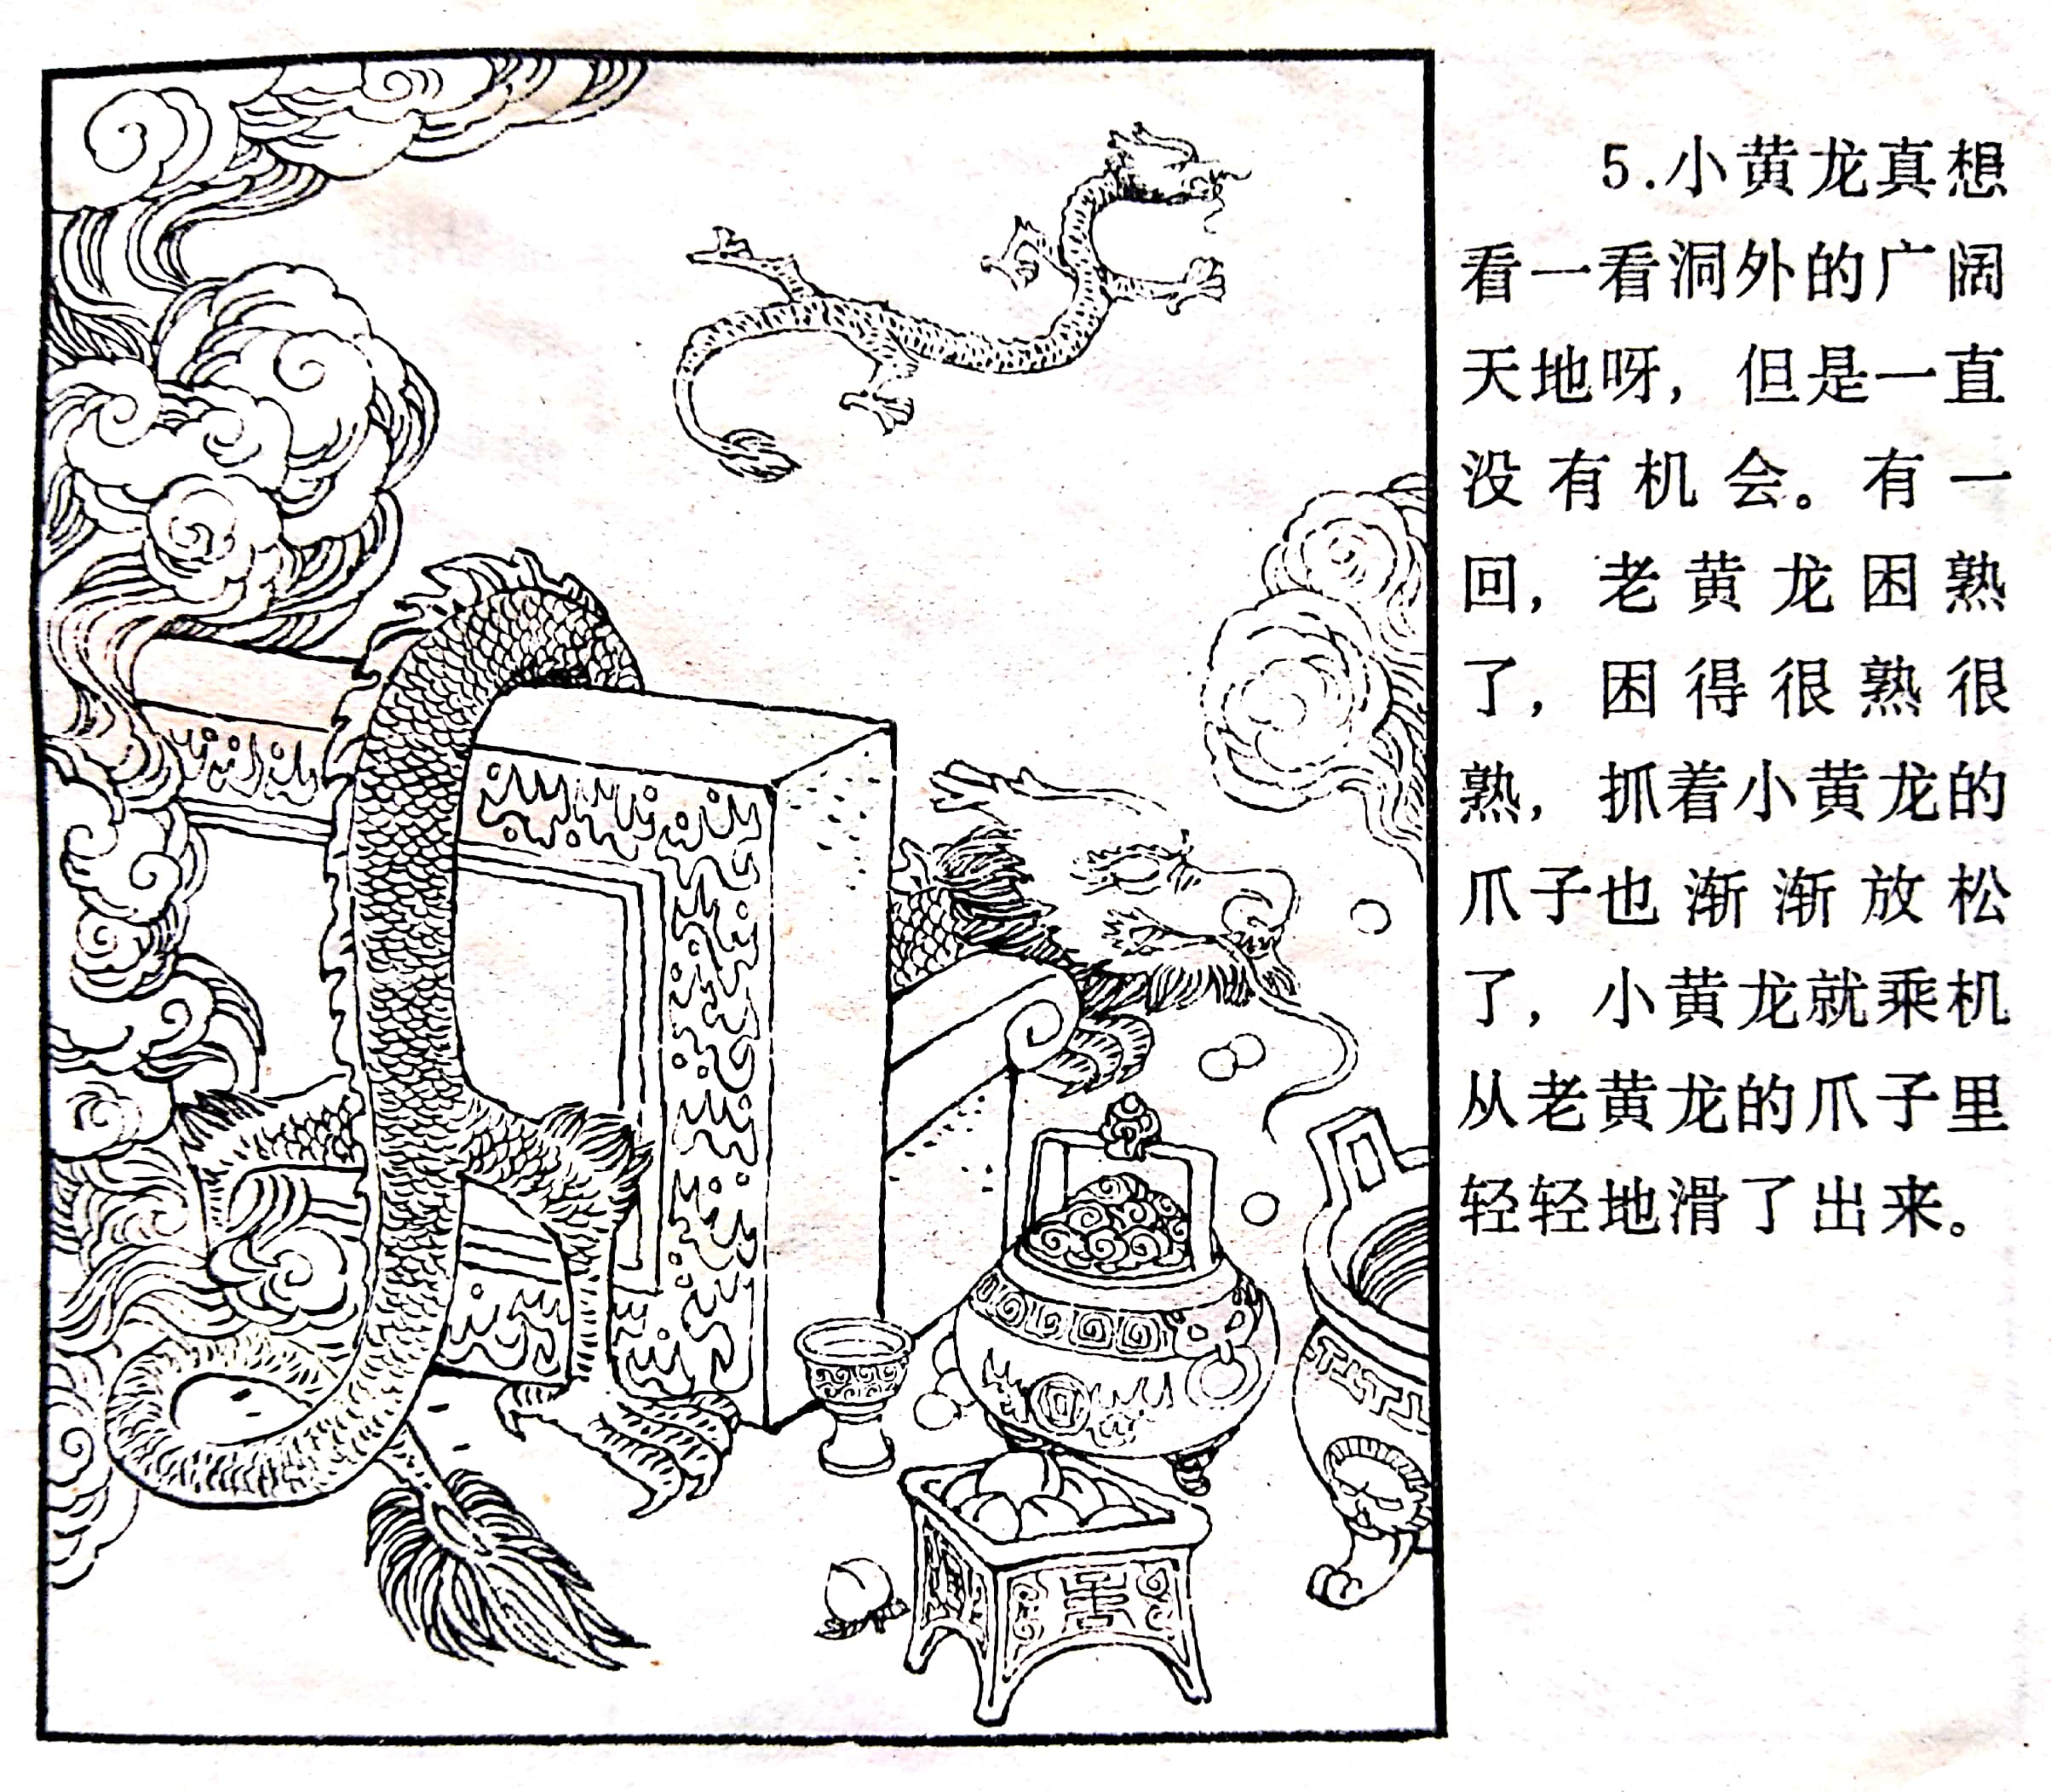 5.小黄龙真想
看一看洞外的广阔
天地呀，但是一直
没有机会。有一
回，老黄龙困熟
了，困得很熟很
熟，抓着小黄龙的
爪子也渐渐放松
了，小黄龙就乘机
从老黄龙的爪子里
轻轻地滑了出来。